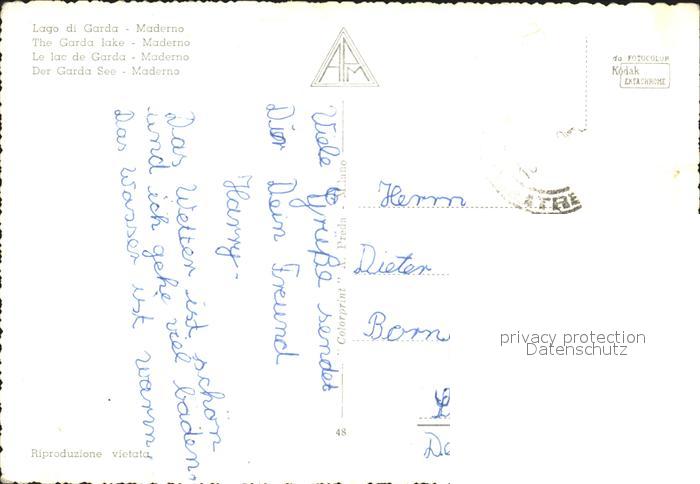 Lago di Garda - Maderno
The Garda lake - Maderno
Le lac de Garda - Maderno
Der Garda See - Maderno
APM
da FOTOCOLOR
Kodak
EKTACHROME
Viele Grüße sendet
Dir Dein Freund
Harry.
Das Wetter ist schön
und ich gehe viel baden.
Das Wasser ist warm
"Colorprint" A. Preda - Milano
Herrn
Dieter
Born
privacy protection
Datenschutz
48
Riproduzione vietata